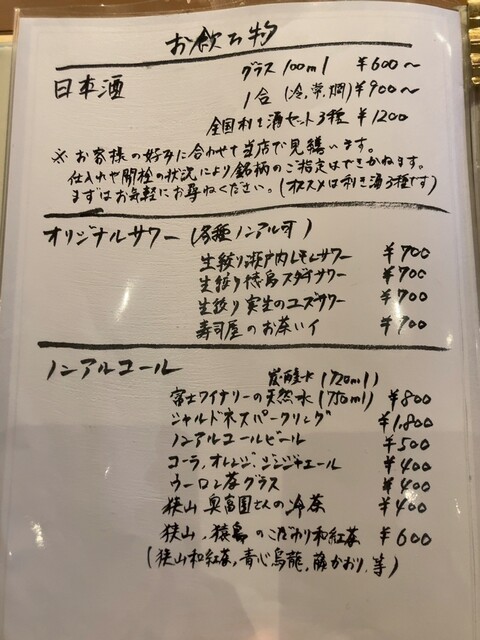 お飲み物
日本酒
グラス 100ml ¥600〜
1合 (冷,常,燗) ¥900〜
全国利き酒セット3種 ¥1200
※ お客様の好みに合わせて当店で見繕います。
仕入れや開栓の状況により銘柄のご指定はできかねます。
まずはお気軽にお尋ねください。(オススメは利き酒3種です)
オリジナルサワー (各種ノンアル可)
生絞り瀬戸内レモンサワー ¥700
生絞り徳島スダチサワー ¥700
生絞り実生のユズサワー ¥700
寿司屋のお茶ハイ ¥700
ノンアルコール
炭酸水 (720ml)
富士ワイナリーの天然水 (750ml) ¥800
シャルドネスパークリング ¥1,800
ノンアルコールビール ¥500
コーラ,オレンジ,ジンジャエール ¥400
ウーロン茶グラス ¥400
狭山 奥富園さんの冷茶 ¥400
狭山,猿島のこだわり和紅茶 ¥600
(狭山和紅茶,青心烏龍,藤かおり,等)